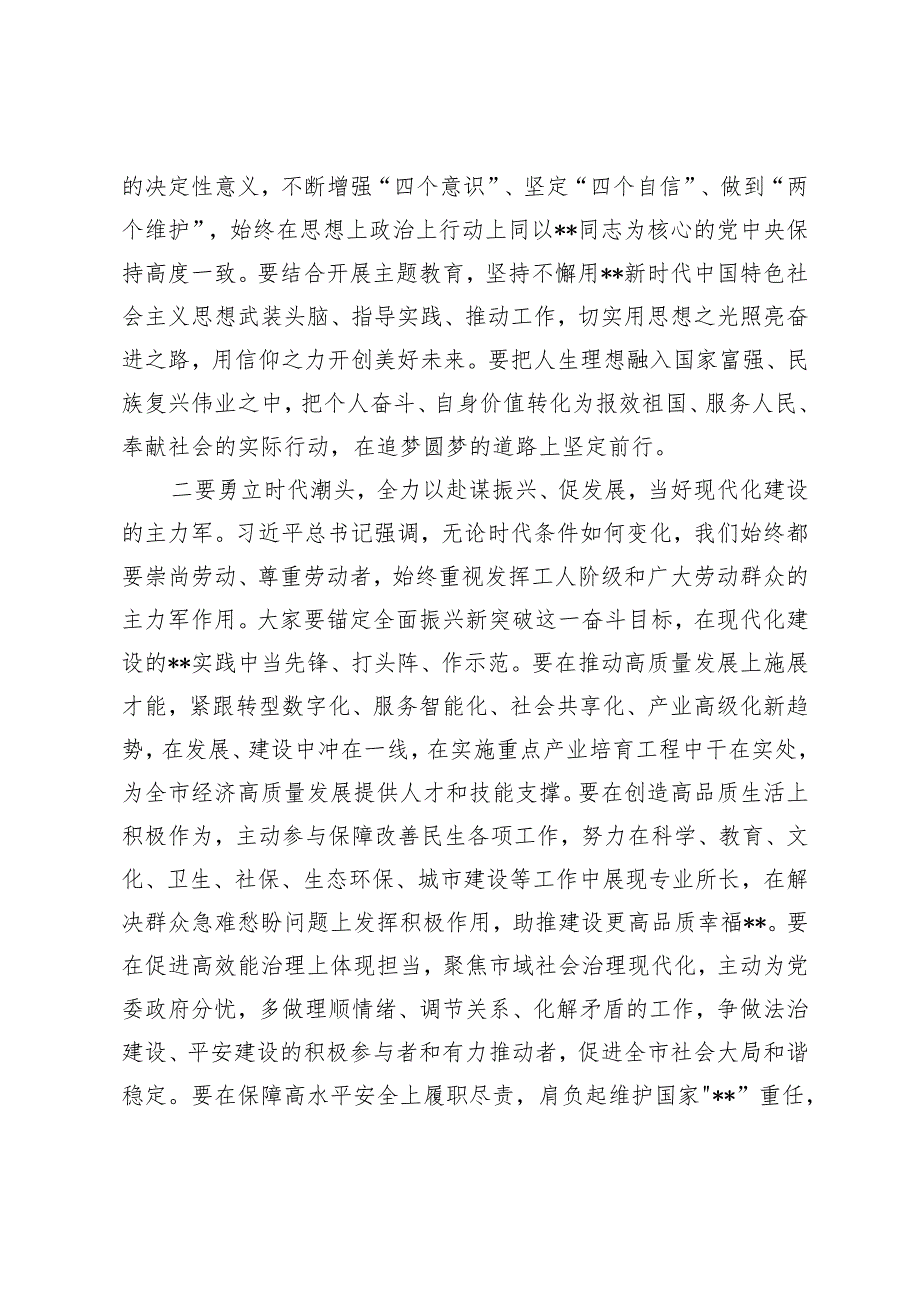 的决定性意义，不断增强“四个意识”、坚定“四个自信”、做到“两
个维护”，始终在思想上政治上行动上同以**同志为核心的党中央保
持高度一致。要结合开展主题教育，坚持不懈用**新时代中国特色社
会主义思想武装头脑、指导实践、推动工作，切实用思想之光照亮奋
进之路，用信仰之力开创美好未来。要把人生理想融入国家富强、民
族复兴伟业之中，把个人奋斗、自身价值转化为报效祖国、服务人民、
奉献社会的实际行动，在追梦圆梦的道路上坚定前行。
二要勇立时代潮头，全力以赴谋振兴、促发展，当好现代化建设
的主力军。习近平总书记强调，无论时代条件如何变化，我们始终都
要崇尚劳动、尊重劳动者，始终重视发挥工人阶级和广大劳动群众的
主力军作用。大家要锚定全面振兴新突破这一奋斗目标，在现代化建
设的**实践中当先锋、打头阵、作示范。要在推动高质量发展上施展
才能，紧跟转型数字化、服务智能化、社会共享化、产业高级化新趋
势，在发展、建设中冲在一线，在实施重点产业培育工程中干在实处，
为全市经济高质量发展提供人才和技能支撑。要在创造高品质生活上
积极作为，主动参与保障改善民生各项工作，努力在科学、教育、文
化、卫生、社保、生态环保、城市建设等工作中展现专业所长，在解
决群众急难愁盼问题上发挥积极作用，助推建设更高品质幸福**。要
在促进高效能治理上体现担当，聚焦市域社会治理现代化，主动为党
委政府分忧，多做理顺情绪、调节关系、化解矛盾的工作，争做法治
建设、平安建设的积极参与者和有力推动者，促进全市社会大局和谐
稳定。要在保障高水平安全上履职尽责，肩负起维护国家"**”重任，